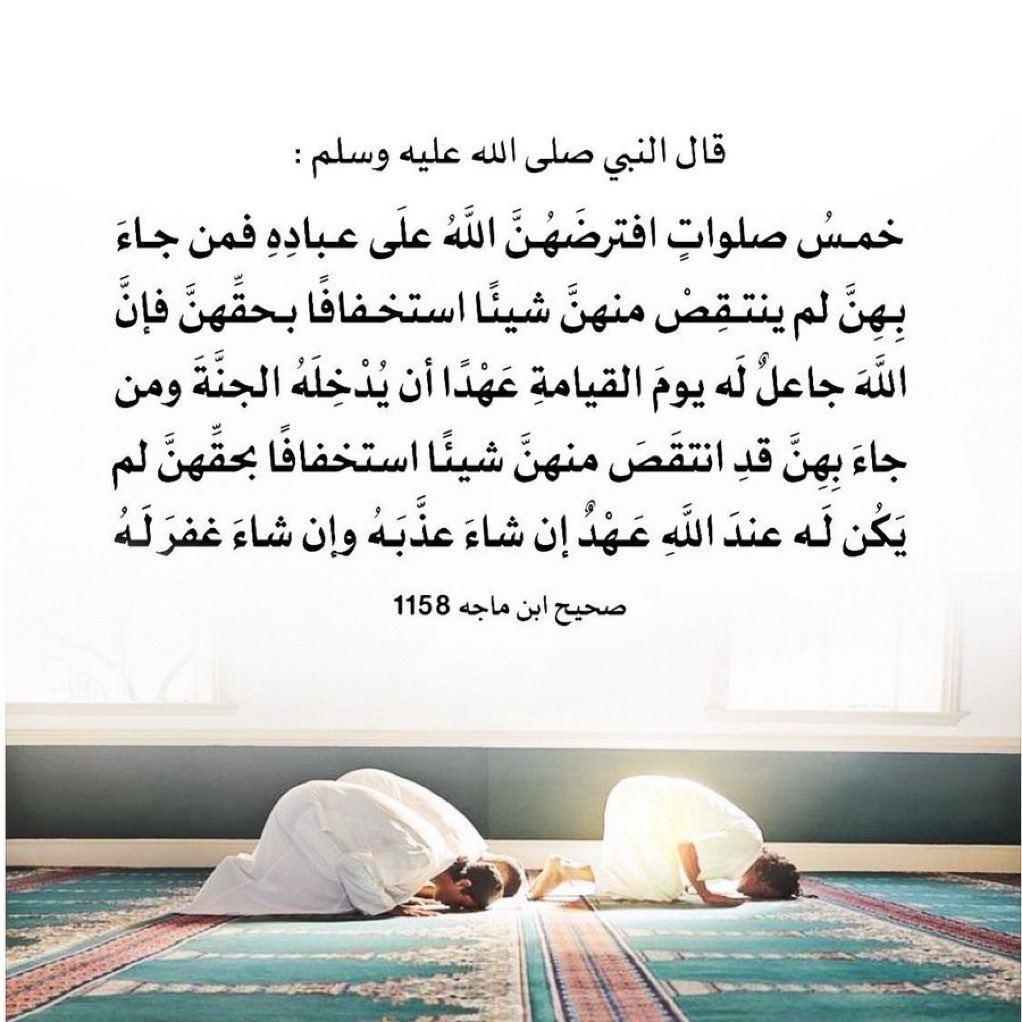 قال النبي صلى الله عليه وسلم :
خمسُ صلواتٍ افترضَهُنَّ اللَّهُ علَى عبادِهِ فمن جاءَ
بِهِنَّ لم ينتقِصْ منهنَّ شيئًا استخفافًا بحقِّهنَّ فإنَّ
اللَّهَ جاعلٌ لَه يومَ القيامةِ عَهْدًا أن يُدْخِلَهُ الجنَّةَ ومن
جاءَ بِهِنَّ قدِ انتقَصَ منهنَّ شيئًا استخفافًا بحقِّهنَّ لم
يَكُن لَه عندَ اللَّهِ عَهْدٌ إن شاءَ عذَّبَهُ وإن شاءَ غفرَ لَهُ
صحيح ابن ماجه 1158